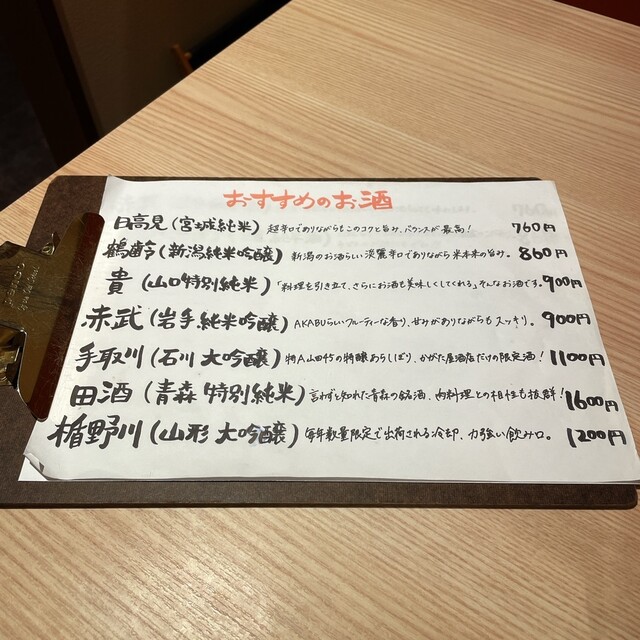 おすすめのお酒
日高見(宮城純米) 超辛口でありながらもこのコクと旨み、バランスが最高! 760円
鶴齢(新潟純米吟醸) 新潟のお酒らしい淡麗辛口でありながら米本来の旨み。 860円
貴(山口特別純米)「料理を引き立て、さらにお酒も美味しくしてくれる」そんなお酒です。 900円
赤武(岩手純米吟醸) AKABUらしいフルーティーな香り、甘みがありながらもスッキリ。 900円
手取川(石川大吟醸) 特A山田45の特醸あらしばり、かがた屋酒店だけの限定酒! 1100円
田酒(青森特別純米) 言わずと知れた青森の銘酒、肉料理との相性も抜群! 1600円
楯野川(山形大吟醸) 毎年数量限定で出荷される冷卸、力強い飲み口。 1200円